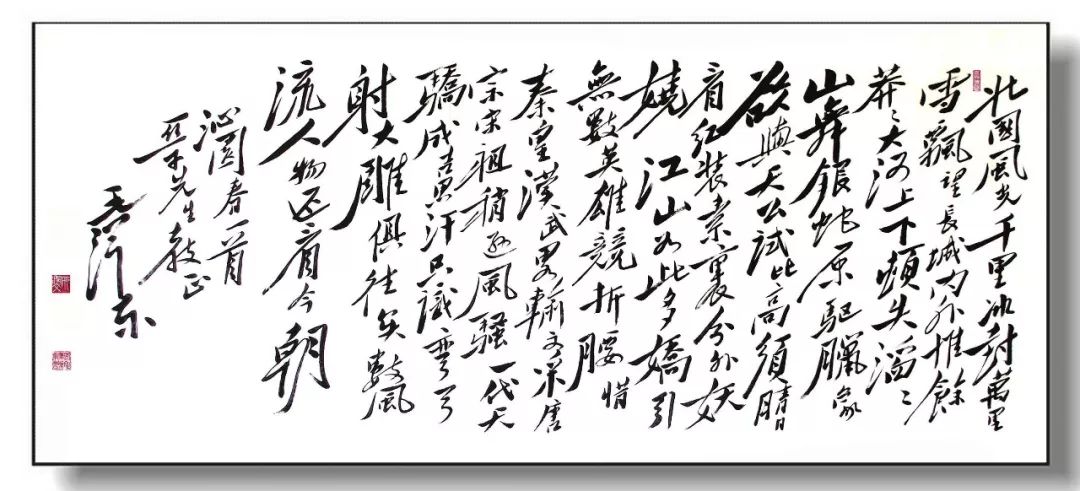 北國風光千里冰封萬里
雪飄望長城內外惟餘
莽〻大河上下頓失滔〻
山舞銀蛇原馳臘象
欲與天公試比高須晴
看紅裝素裹分外妖
嬈江山如此多嬌引
無數英雄競折腰惜
秦皇漢武略輸文采唐
宗宋祖稍遜風騷一代天
驕成吉思汗只識彎弓
射大雕俱往矣數風
流人物还看今朝
沁園春一首
亞子先生教正
毛澤東